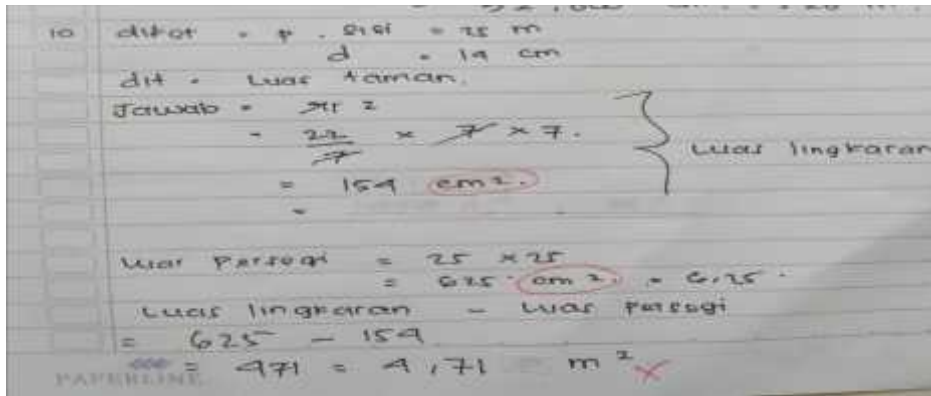 10 dikot = p. sisi = 25 m
d = 14 cm
dit = Luas taman.
Jawab = πr 2
= 22/7 × 7 × 7.
Luas lingkaran
= 154 cm2.
=
Luas Persegi = 25 × 25
= 625 cm2 = 6,25.
Luas lingkaran - Luas persegi
= 625 - 154
= 471 = 4,71 m2
PAPERLINE